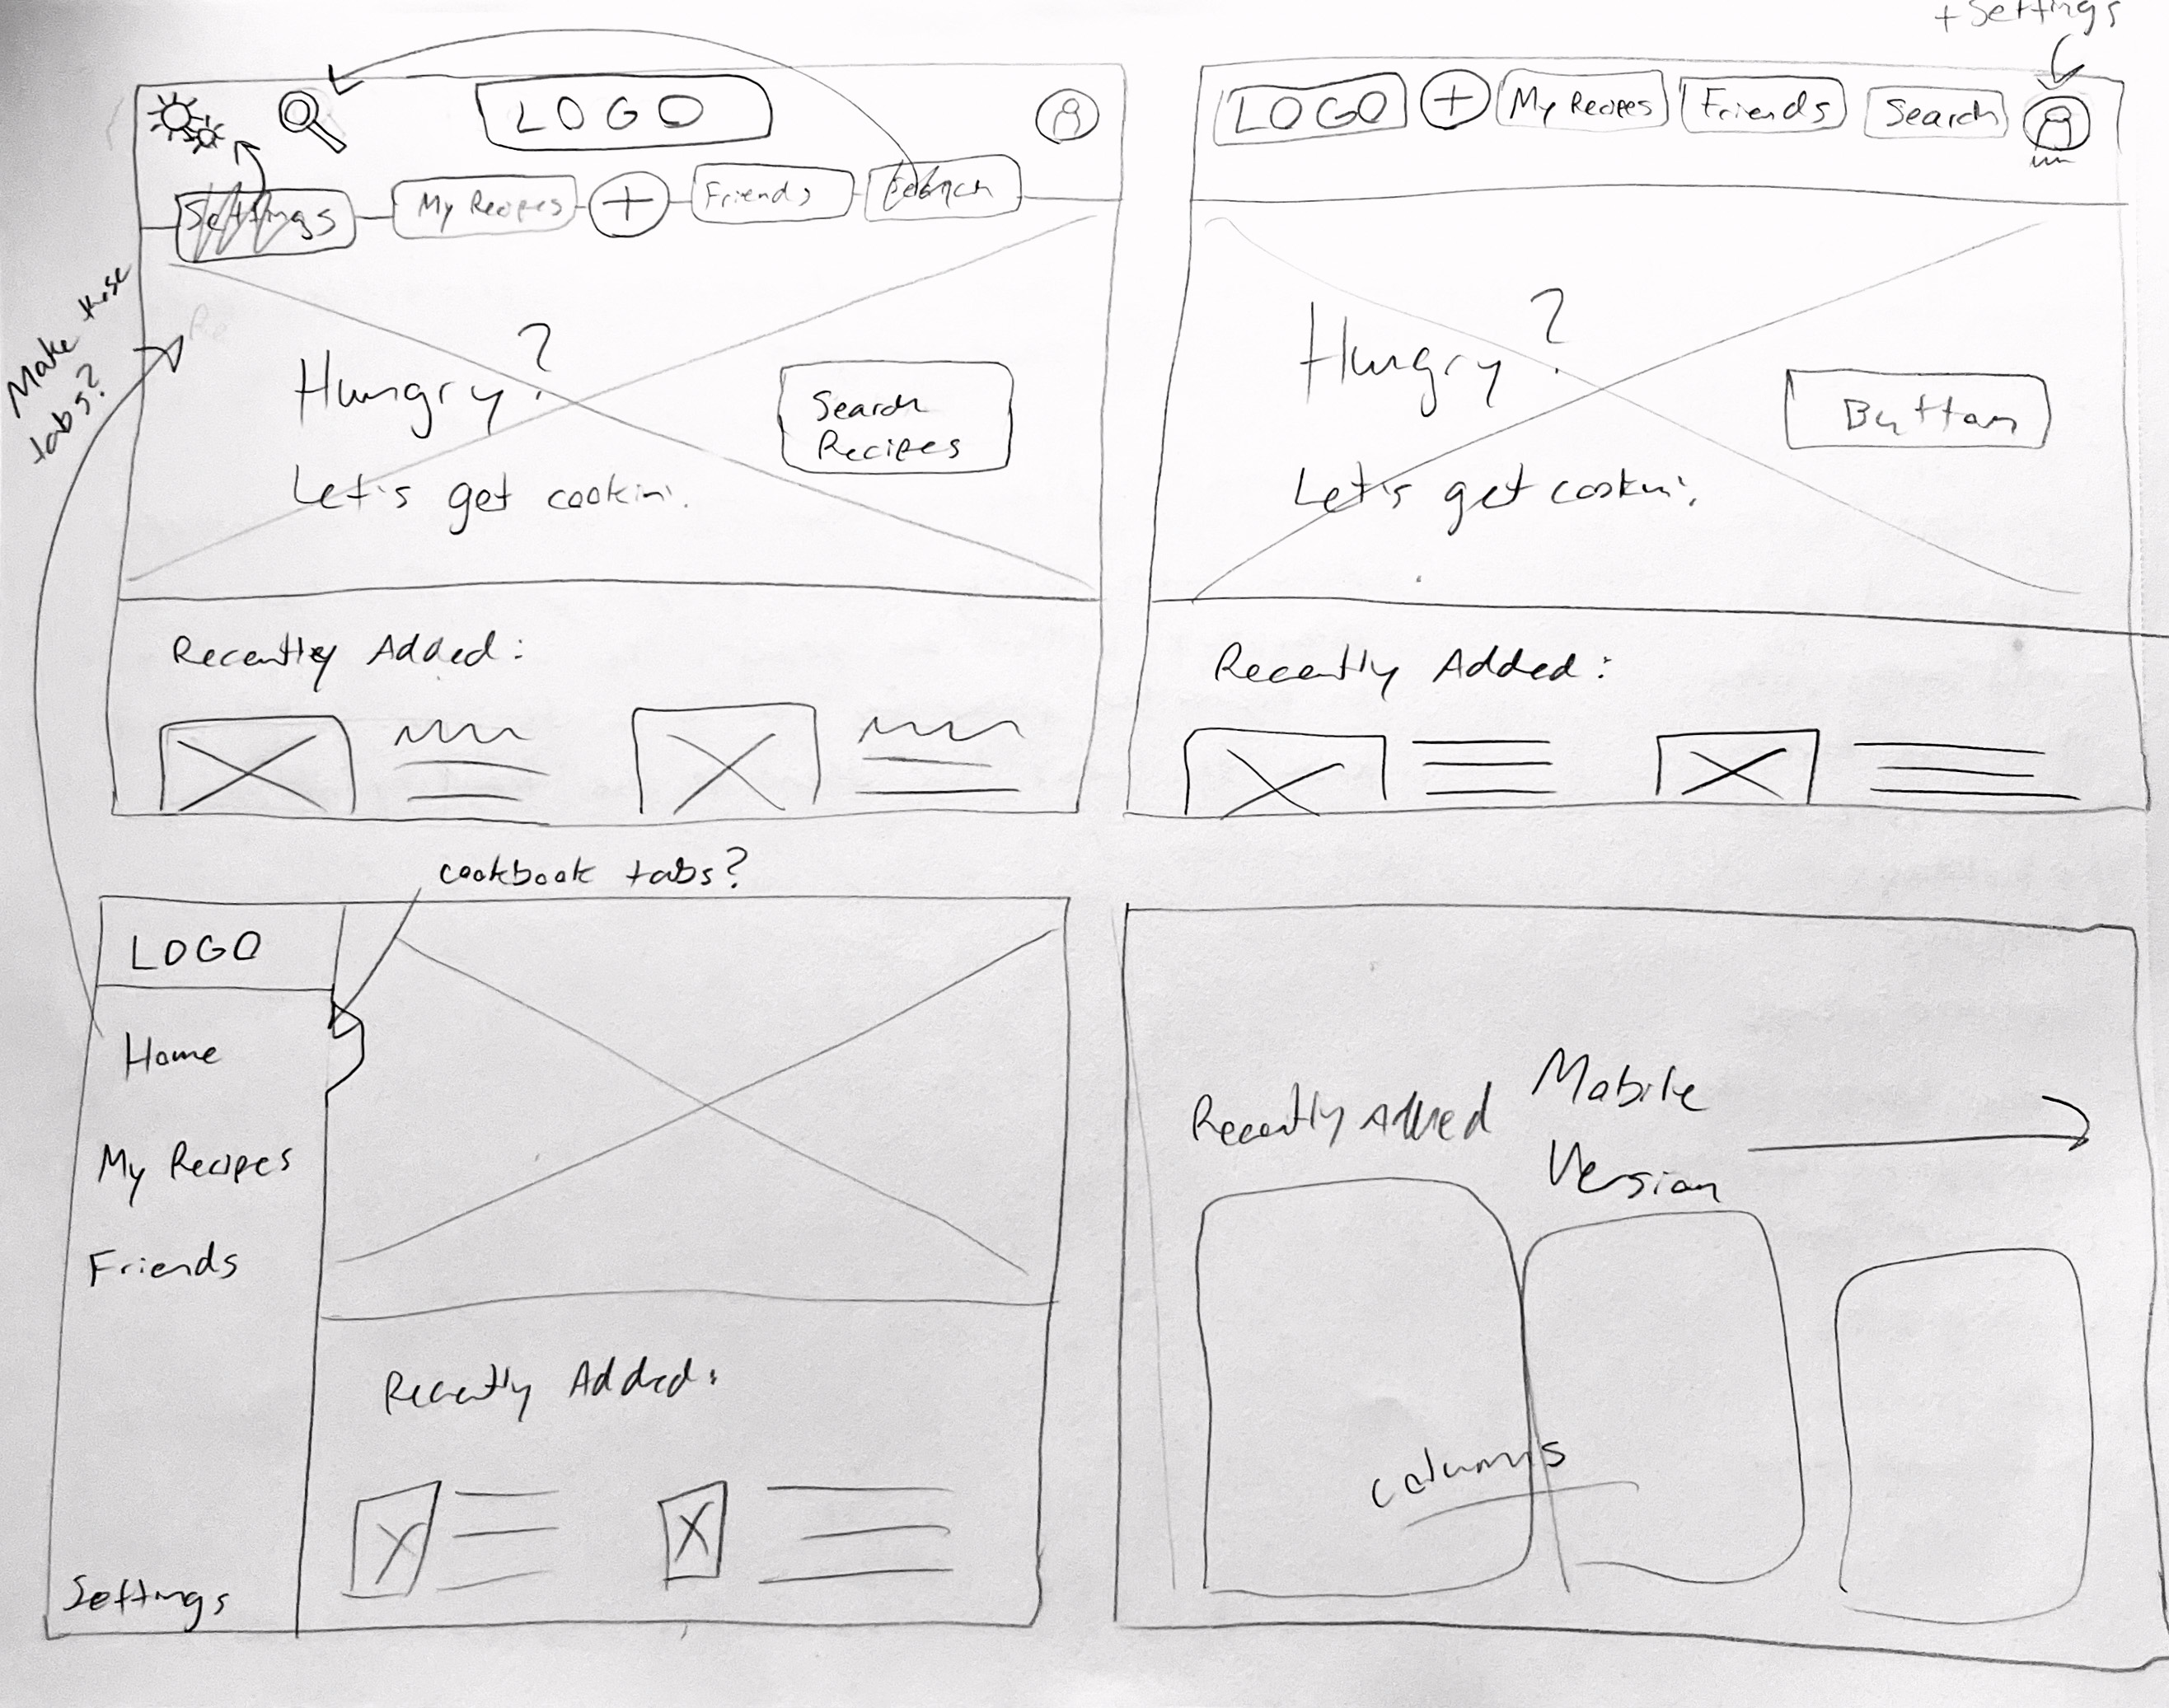 + Settings
LOGO
Settings
My Recipes
+
Friends
Search
Make these
tabs?
Hungry?
Let's get cookin'.
Search
Recipes
Recently Added:
LOGO
+
My Recipes
Friends
Search
Hungry?
Let's get cookin'.
Button
Recently Added:
cookbook tabs?
LOGO
Home
My Recipes
Friends
Settings
Recently Added:
Recently Added
Mobile
Version
columns